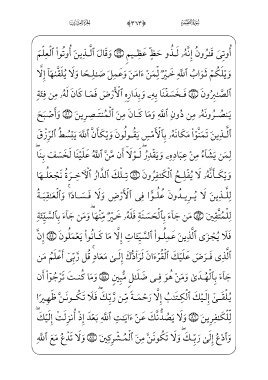 سُورَةُ القَصَصِ ﴿٣٧٣﴾ الجُزْءُ العِشْرُونَ
أُوتِىَ قَٰرُونُ إِنَّهُۥ لَذُو حَظٍّ عَظِيمٍ ٧٩ وَقَالَ ٱلَّذِينَ أُوتُوا۟ ٱلْعِلْمَ
وَيْلَكُمْ ثَوَابُ ٱللَّهِ خَيْرٌ لِّمَنْ ءَامَنَ وَعَمِلَ صَٰلِحًا وَلَا يُلَقَّىٰهَآ إِلَّا
ٱلصَّٰبِرُونَ ٨٠ فَخَسَفْنَا بِهِۦ وَبِدَارِهِ ٱلْأَرْضَ فَمَا كَانَ لَهُۥ مِن فِئَةٍ
يَنصُرُونَهُۥ مِن دُونِ ٱللَّهِ وَمَا كَانَ مِنَ ٱلْمُنتَصِرِينَ ٨١ وَأَصْبَحَ
ٱلَّذِينَ تَمَنَّوْا۟ مَكَانَهُۥ بِٱلْأَمْسِ يَقُولُونَ وَيْكَأَنَّ ٱللَّهَ يَبْسُطُ ٱلرِّزْقَ
لِمَن يَشَآءُ مِنْ عِبَادِهِۦ وَيَقْدِرُ لَوْلَآ أَن مَّنَّ ٱللَّهُ عَلَيْنَا لَخَسَفَ بِنَا
وَيْكَأَنَّهُۥ لَا يُفْلِحُ ٱلْكَٰفِرُونَ ٨٢ تِلْكَ ٱلدَّارُ ٱلْءَاخِرَةُ نَجْعَلُهَا
لِلَّذِينَ لَا يُرِيدُونَ عُلُوًّا فِى ٱلْأَرْضِ وَلَا فَسَادًا وَٱلْعَٰقِبَةُ
لِلْمُتَّقِينَ ٨٣ مَن جَآءَ بِٱلْحَسَنَةِ فَلَهُۥ خَيْرٌ مِّنْهَا وَمَن جَآءَ بِٱلسَّيِّئَةِ
فَلَا يُجْزَى ٱلَّذِينَ عَمِلُوا۟ ٱلسَّيِّـَٔاتِ إِلَّا مَا كَانُوا۟ يَعْمَلُونَ ٨٤ إِنَّ
ٱلَّذِى فَرَضَ عَلَيْكَ ٱلْقُرْءَانَ لَرَآدُّكَ إِلَىٰ مَعَادٍ قُل رَّبِّىٓ أَعْلَمُ مَن
جَآءَ بِٱلْهُدَىٰ وَمَنْ هُوَ فِى ضَلَٰلٍ مُّبِينٍ ٨٥ وَمَا كُنتَ تَرْجُوٓا۟ أَن
يُلْقَىٰٓ إِلَيْكَ ٱلْكِتَٰبُ إِلَّا رَحْمَةً مِّن رَّبِّكَ فَلَا تَكُونَنَّ ظَهِيرًا
لِّلْكَٰفِرِينَ ٨٦ وَلَا يَصُدُّنَّكَ عَنْ ءَايَٰتِ ٱللَّهِ بَعْدَ إِذْ أُنزِلَتْ إِلَيْكَ
وَٱدْعُ إِلَىٰ رَبِّكَ وَلَا تَكُونَنَّ مِنَ ٱلْمُشْرِكِينَ ٨٧ وَلَا تَدْعُ مَعَ ٱللَّهِ